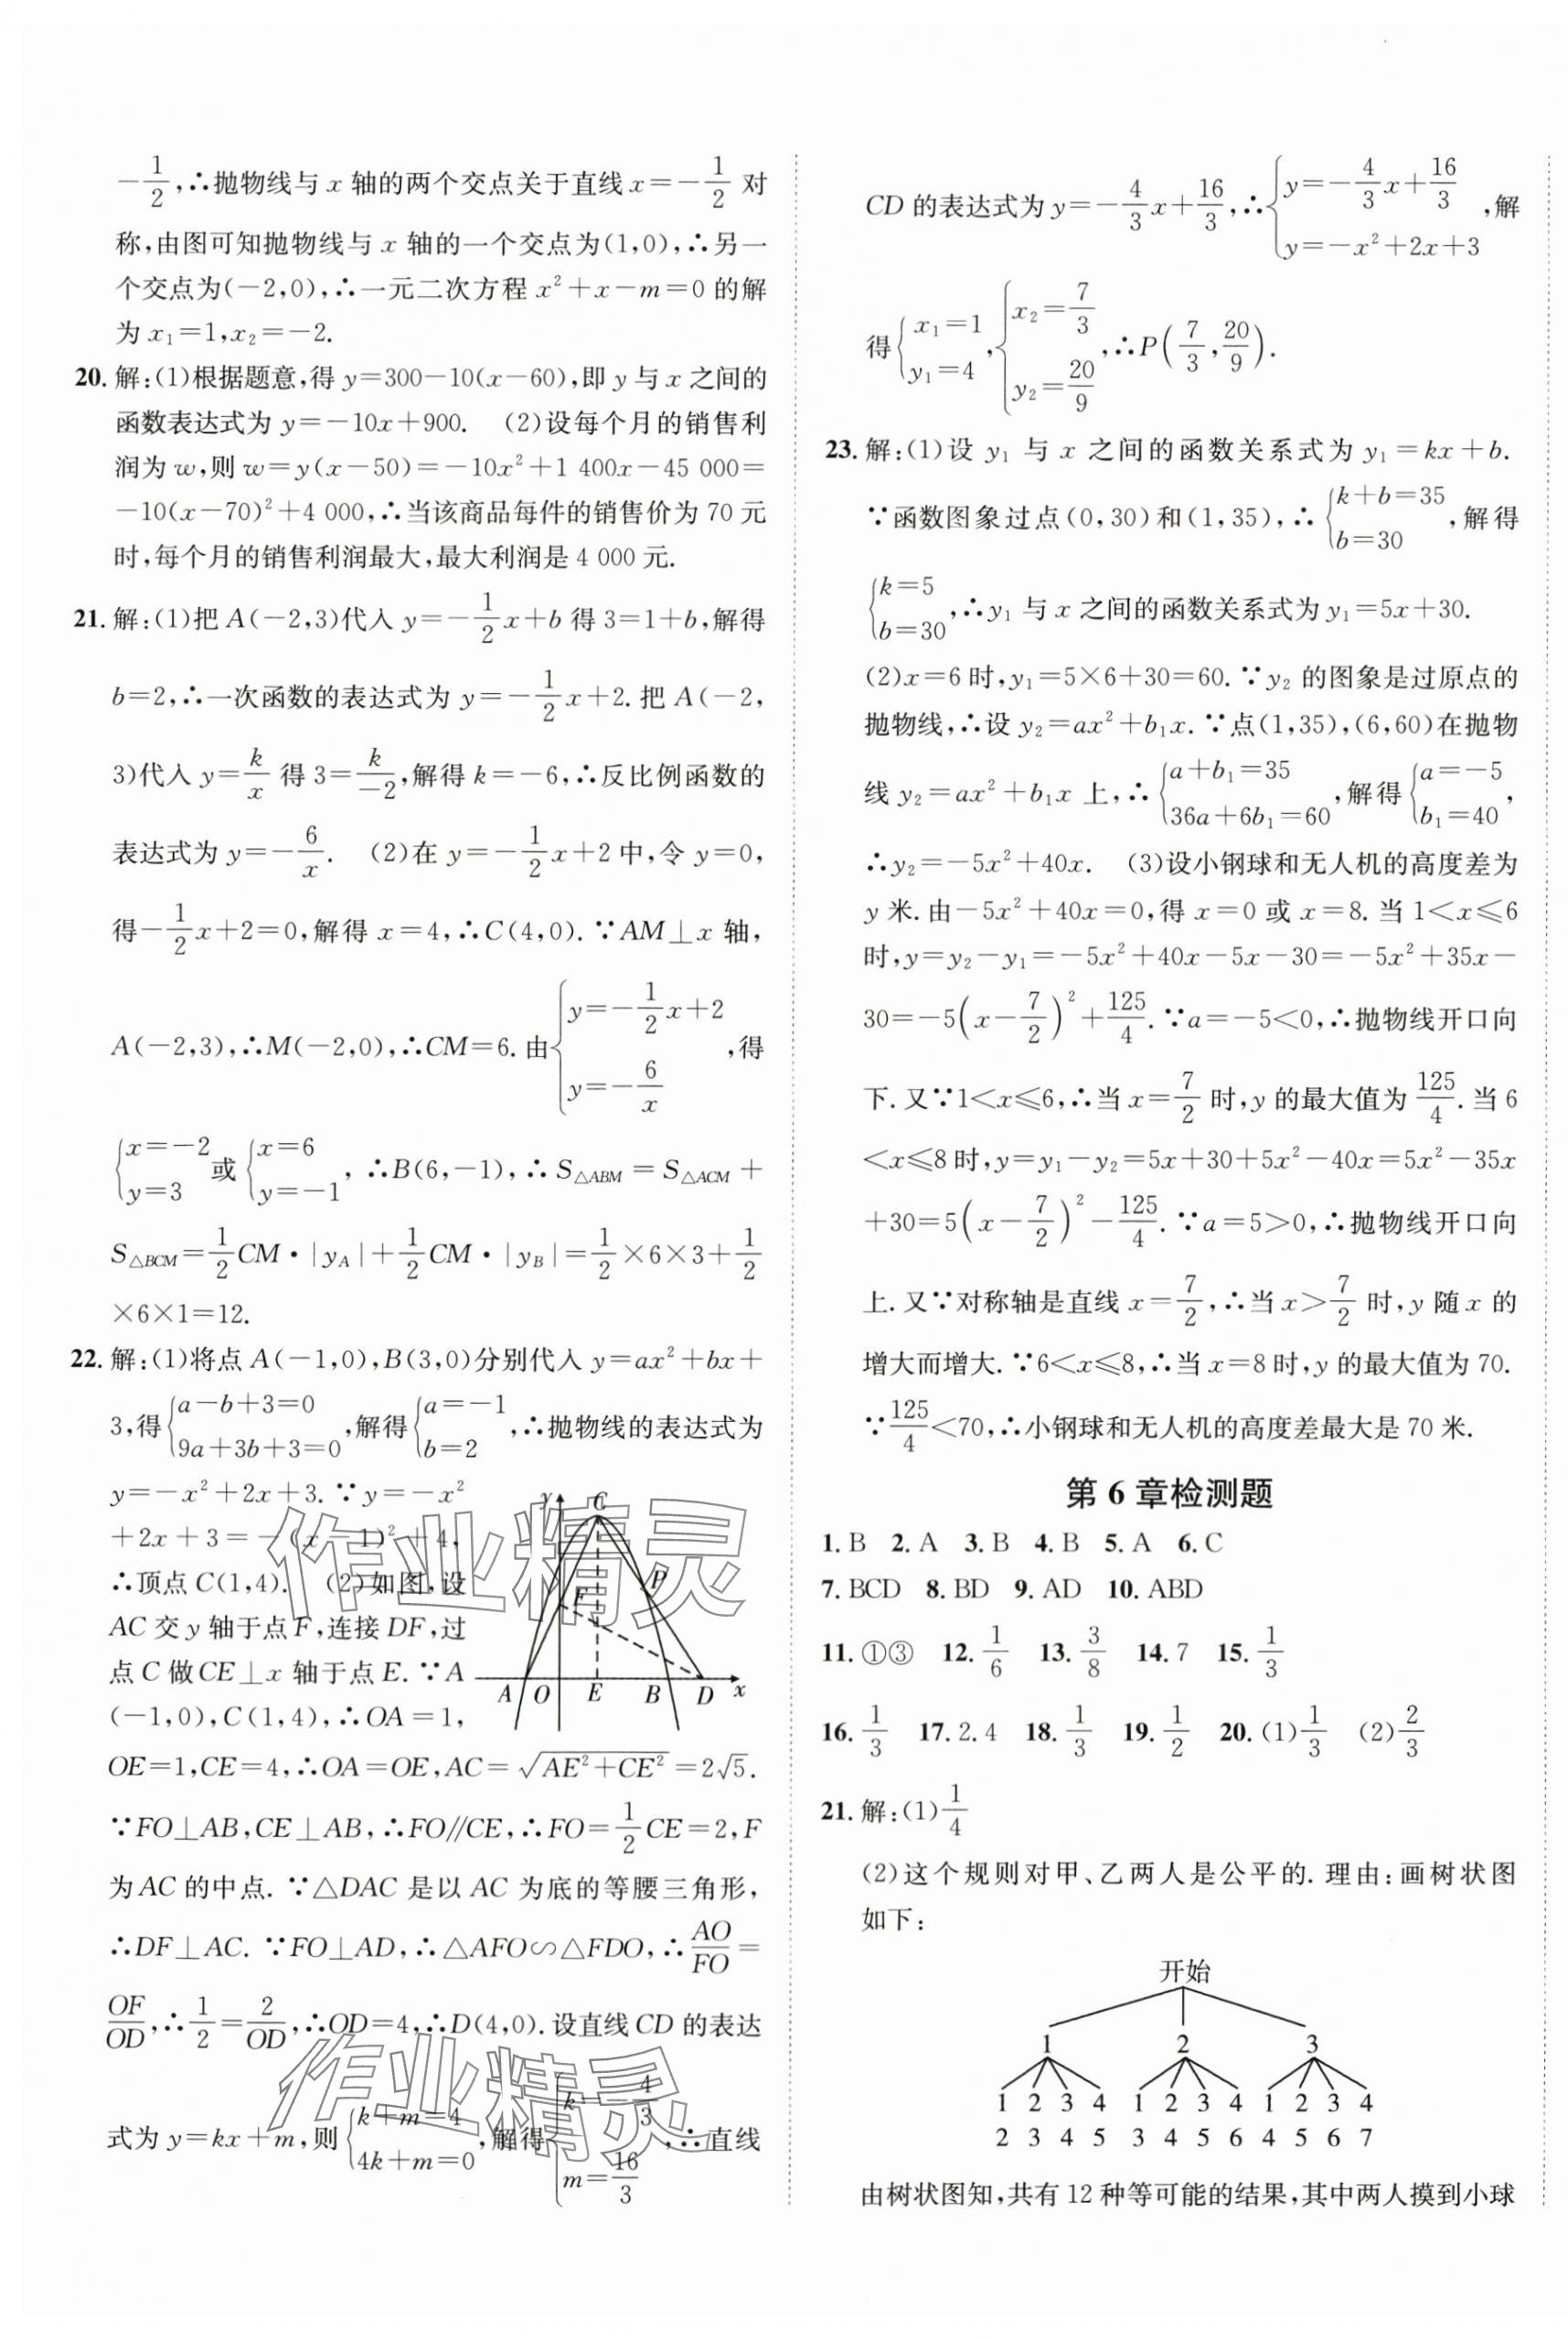 -1/2,∴抛物线与 x 轴的两个交点关于直线 x=-1/2 对
称,由图可知抛物线与 x 轴的一个交点为(1,0),∴另一
个交点为(-2,0),∴一元二次方程 x²+x-m=0 的解
为 x₁=1,x₂=-2.
20. 解:(1)根据题意,得 y=300-10(x-60),即 y 与 x 之间的
函数表达式为 y=-10x+900. (2)设每个月的销售利
润为 w,则 w=y(x-50)=-10x²+1 400x-45 000=
-10(x-70)²+4 000,∴当该商品每件的销售价为 70 元
时,每个月的销售利润最大,最大利润是 4 000 元.
21. 解:(1)把 A(-2,3)代入 y=-1/2x+b 得 3=1+b,解得
b=2,∴一次函数的表达式为 y=-1/2x+2. 把 A(-2,
3)代入 y=k/x 得 3=k/-2,解得 k=-6,∴反比例函数的
表达式为 y=-6/x. (2)在 y=-1/2x+2 中,令 y=0,
得-1/2x+2=0,解得 x=4,∴C(4,0). ∵AM⊥x 轴,
A(-2,3),∴M(-2,0),∴CM=6. 由{y=-1/2x+2 y=-6/x,得
{x=-2 y=3或{x=6 y=-1,∴B(6,-1),∴S△ABM=S△ACM+
S△BCM=1/2CM·|yA|+1/2CM·|yB|=1/2×6×3+1/2
×6×1=12.
22. 解:(1)将点 A(-1,0),B(3,0)分别代入 y=ax²+bx+
3,得{a-b+3=0 9a+3b+3=0,解得{a=-1 b=2,∴抛物线的表达式为
y=-x²+2x+3. ∵y=-x²
+2x+3=-(x-1)²+4,
∴顶点 C(1,4). (2)如图,设
AC 交 y 轴于点 F,连接 DF,过
点 C 做 CE⊥x 轴于点 E. ∵A
(-1,0),C(1,4),∴OA=1,
y C P F A O E B D x
OE=1,CE=4,∴OA=OE,AC=√(AE²+CE²)=2√5.
∵FO⊥AB,CE⊥AB,∴FO∥CE,∴FO=1/2CE=2,F
为 AC 的中点. ∵△DAC 是以 AC 为底的等腰三角形,
∴DF⊥AC. ∵FO⊥AD,∴△AFO∽△FDO,∴AO/FO=
OF/OD,∴1/2=2/OD,∴OD=4,∴D(4,0). 设直线 CD 的表达
式为 y=kx+m,则{k+m=4 4k+m=0,解得{k=-4/3 m=16/3,∴直线
作业精灵
作业精灵
CD 的表达式为 y=-4/3x+16/3,∴{y=-4/3x+16/3 y=-x²+2x+3,解
得{x₁=1 y₁=4,{x₂=7/3 y₂=20/9,∴P(7/3,20/9).
23. 解:(1)设 y₁ 与 x 之间的函数关系式为 y₁=kx+b.
∵函数图象过点(0,30)和(1,35),∴{k+b=35 b=30,解得
{k=5 b=30,∴y₁ 与 x 之间的函数关系式为 y₁=5x+30.
(2)x=6 时,y₁=5×6+30=60. ∵y₂ 的图象是过原点的
抛物线,∴设 y₂=ax²+b₁x. ∵点(1,35),(6,60)在抛物
线 y₂=ax²+b₁x 上,∴{a+b₁=35 36a+6b₁=60,解得{a=-5 b₁=40,
∴y₂=-5x²+40x. (3)设小钢球和无人机的高度差为
y 米. 由-5x²+40x=0,得 x=0 或 x=8. 当 1<x≤6
时,y=y₂-y₁=-5x²+40x-5x-30=-5x²+35x-
30=-5(x-7/2)²+125/4. ∵a=-5<0,∴抛物线开口向
下. 又∵1<x≤6,∴当 x=7/2 时,y 的最大值为 125/4. 当 6
<x≤8 时,y=y₁-y₂=5x+30+5x²-40x=5x²-35x
+30=5(x-7/2)²-125/4. ∵a=5>0,∴抛物线开口向
上. 又∵对称轴是直线 x=7/2,∴当 x>7/2 时,y 随 x 的
增大而增大. ∵6<x≤8,∴当 x=8 时,y 的最大值为 70.
∵125/4<70,∴小钢球和无人机的高度差最大是 70 米.
第 6 章检测题
1. B 2. A 3. B 4. B 5. A 6. C
7. BCD 8. BD 9. AD 10. ABD
11. ①③ 12. 1/6 13. 3/8 14. 7 15. 1/3
16. 1/3 17. 2.4 18. 1/3 19. 1/2 20. (1)1/3 (2)2/3
21. 解:(1)1/4
(2)这个规则对甲、乙两人是公平的. 理由:画树状图
如下:
开始
1 2 3
1 2 3 4 1 2 3 4 1 2 3 4
2 3 4 5 3 4 5 6 4 5 6 7
由树状图知,共有 12 种等可能的结果,其中两人摸到小球